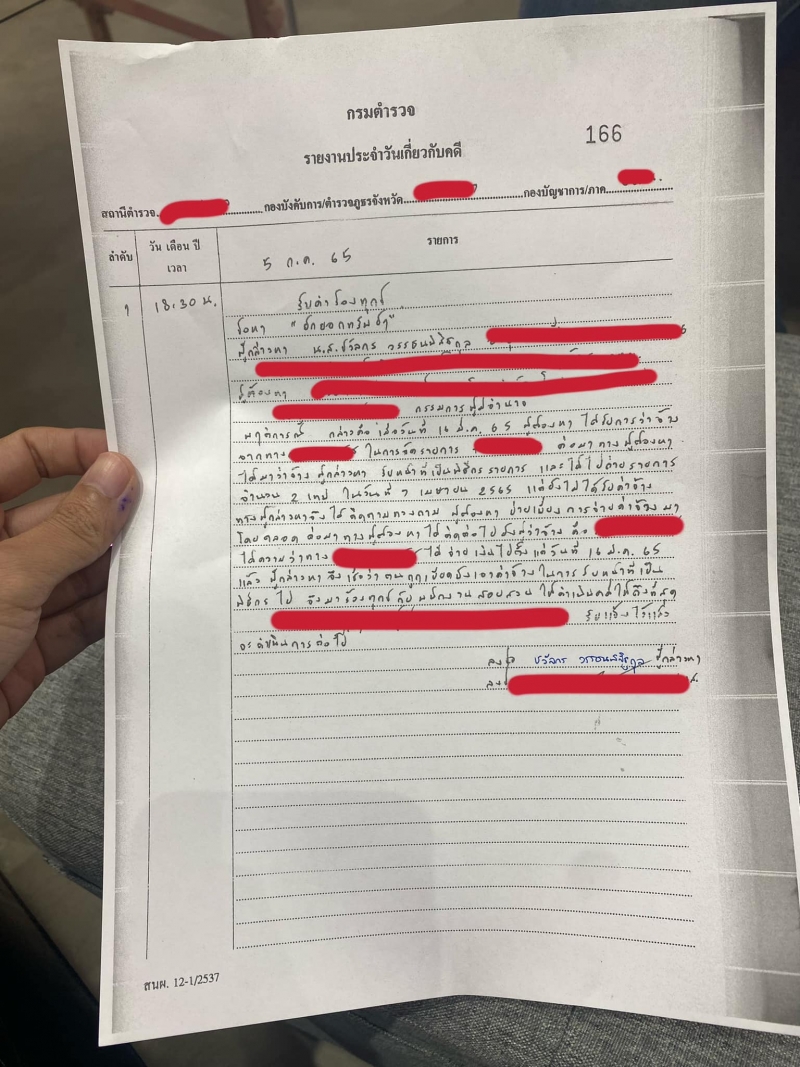 กรมตำรวจ
166
รายงานประจำวันเกี่ยวกับคดี
สถานีตำรวจ กองบังคับการ/ตำรวจภูธรจังหวัด กองบัญชาการ/ภาค
ลำดับ วัน เดือน ปี เวลา รายการ
5 ก.ค. 65
1 18.30 น. รับคำร้องทุกข์
ข้อหา "ยักยอกทรัพย์ฯ"
ผู้กล่าวหา น.ส.ชวัลกร วรรธนพิสิฐกุล
ผู้ต้องหา
กรรมการผู้มีอำนาจ
พฤติการณ์ กล่าวคือ เมื่อวันที่ 16 มี.ค. 65 ผู้ต้องหา ได้รับการว่าจ้าง
จากทาง ในการจัดรายการ ต่อมาทางผู้ต้องหา
ได้มาว่าจ้าง ผู้กล่าวหา รับหน้าที่เป็นพิธีกรรายการ และได้ไปถ่ายรายการ
จำนวน 2 เทป ในวันที่ 7 เมษายน 2565 แต่ยังไม่ได้รับค่าจ้าง
ทางผู้กล่าวหาจึงได้ติดตามทวงถาม ผู้ต้องหา บ่ายเบี่ยง การจ่ายค่าจ้าง มา
โดยตลอด ต่อมาทางผู้กล่าวหาได้ติดต่อไปยังผู้ว่าจ้าง คือ
ได้ความว่าทาง ได้จ่ายเงินไปตั้งแต่วันที่ 16 มี.ค. 65
แล้ว ผู้กล่าวหาจึงเชื่อว่า ตนถูกเบียดบังเอาค่าจ้างในการรับหน้าที่เป็น
พิธีกรไป จึงมาร้องทุกข์กับพนักงานสอบสวน ให้ดำเนินคดีให้ถึงที่สุด
รับแจ้งไว้แล้ว
จะดำเนินการต่อไป
ลงชื่อ ชวัลกร วรรธนพิสิฐกุล ผู้กล่าวหา
สนผ. 12-1/2537